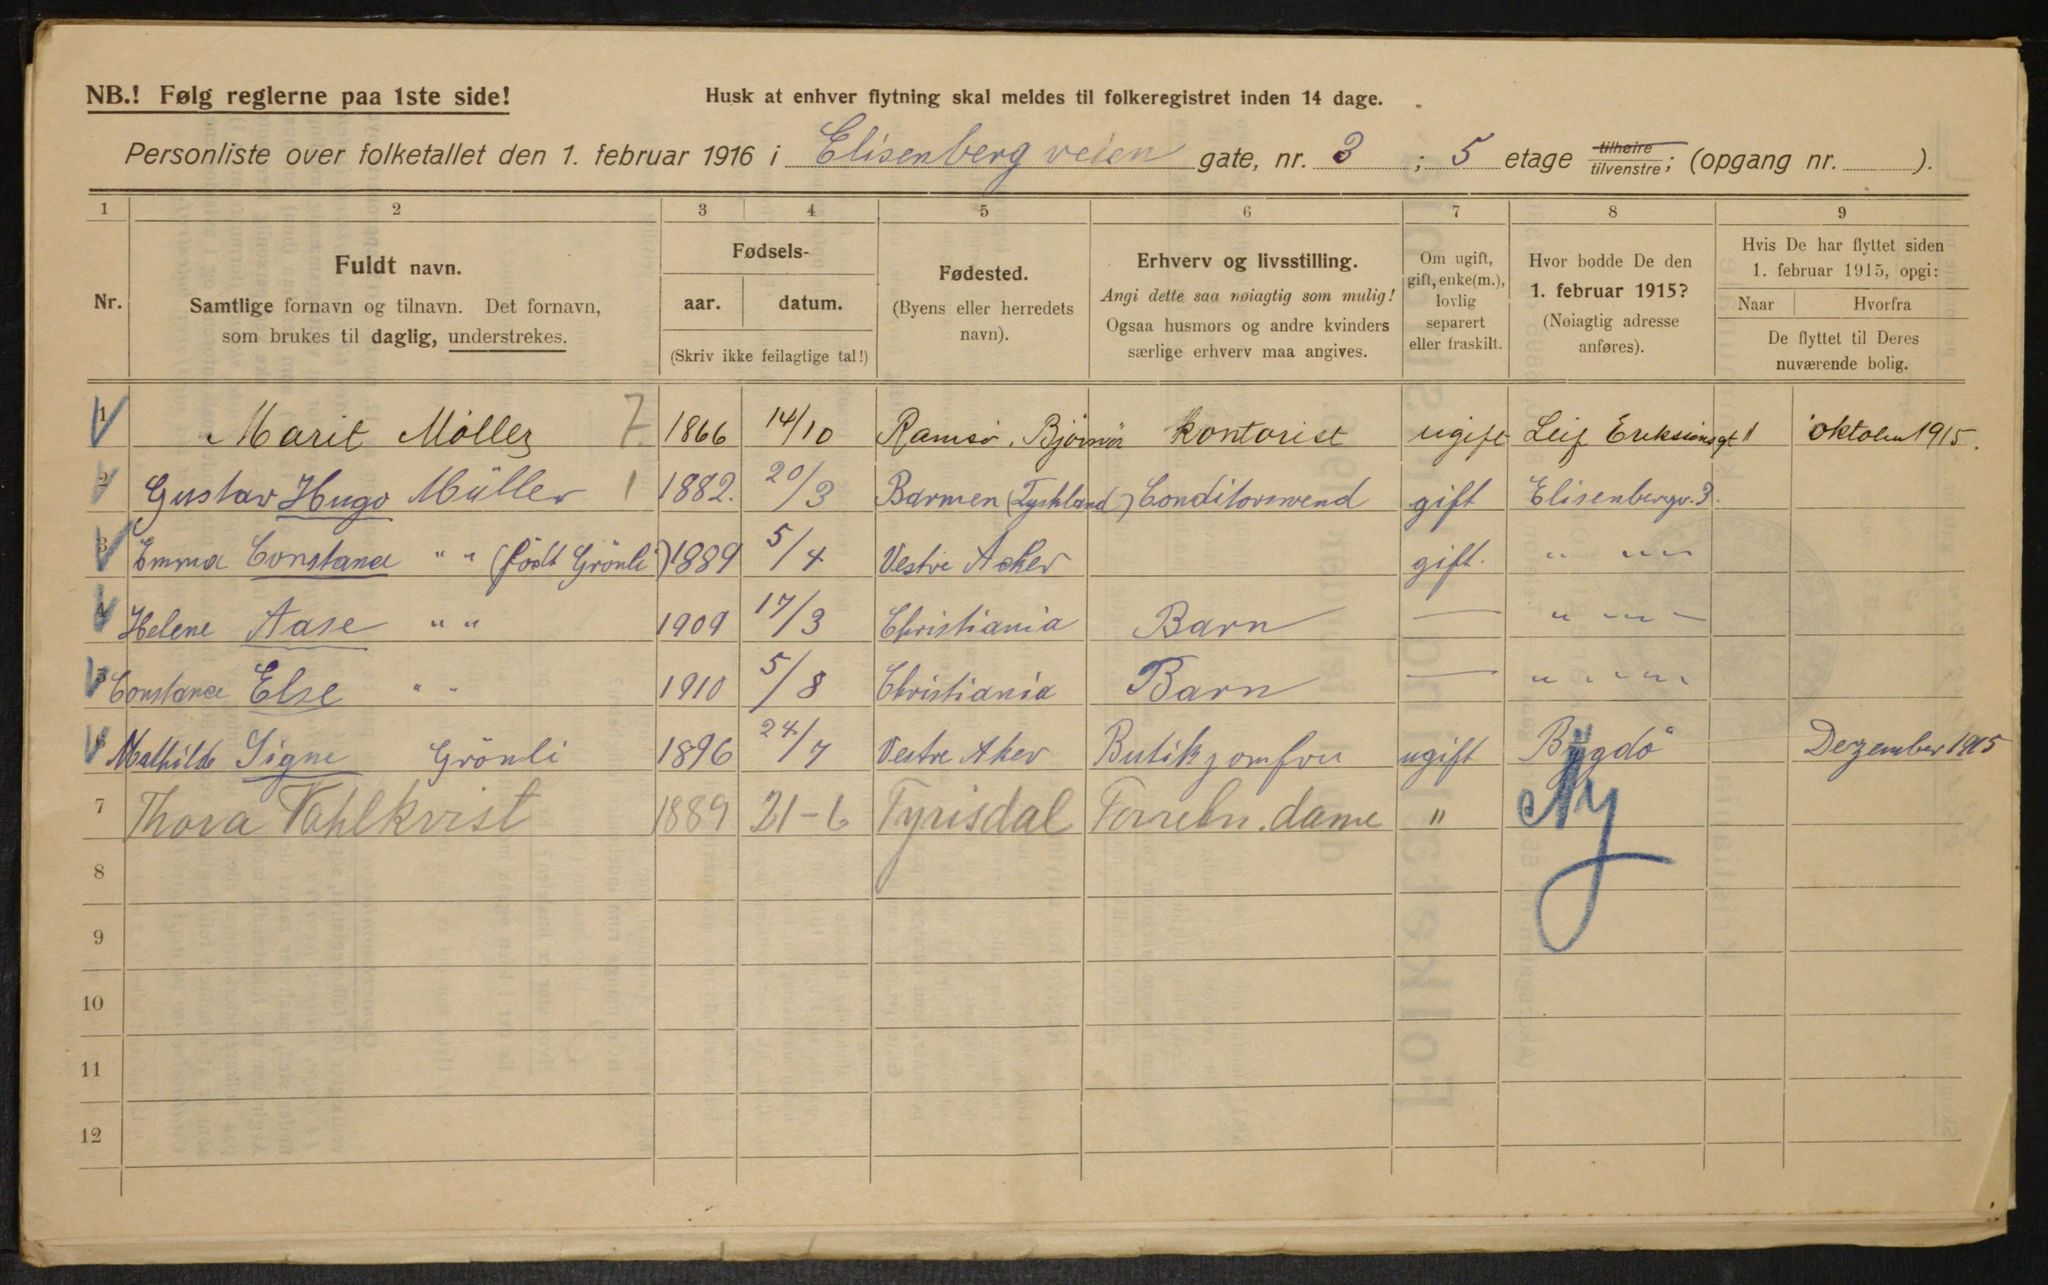 NB.! Følg reglerne paa 1ste side!
Husk at enhver flytning skal meldes til folkeregistret inden 14 dage.
Personliste over folketallet den 1. februar 1916 i Elisenberg veien gate, nr. 3 ; 5 etage tilhøire/tilvenstre; (opgang nr. ).
1 2 3 4 5 6 7 8 9
Nr.
Fuldt navn.
Samtlige fornavn og tilnavn. Det fornavn,
som brukes til daglig, understrekes.
Fødsels-
aar. datum.
(Skriv ikke feilagtige tal!)
Fødested.
(Byens eller herredets
navn).
Erhverv og livsstilling.
Angi dette saa nøiagtig som mulig!
Ogsaa husmors og andre kvinders
særlige erhverv maa angives.
Om ugift,
gift, enke(m.),
lovlig
separert
eller fraskilt.
Hvor bodde De den
1. februar 1915?
(Nøiagtig adresse
anføres).
Hvis De har flyttet siden
1. februar 1915, opgi:
Naar Hvorfra
De flyttet til Deres
nuværende bolig.
1 Marit Möller 7 1866 14/10 Ramsö, Björnör Kontorist ugift Leif Eriksonsgt 11 oktober 1915.
2 Gustav Hugo Müller 1 1882. 20/3 Barmen (Tyskland) Conditorsvend gift Elisenbergv. 3.
3 Emma Constance " " (födt Grönli) 1889 5/4 Vestre Aker gift. " " " "
4 Helene Aase " " 1909 17/3 Christiania Barn — " " " "
5 Constance Else " " 1910 5/8 Christiania Barn — " " " " "
6 Mathilde Signe Grönli 1896 24/7 Vestre Aker Butikjomfru ugift Bygdö Dezember 1915
7 Thora Dahlkvist 1889 21-6 Tyrisdal Forretn. dame " Ny
8
9
10
11
12